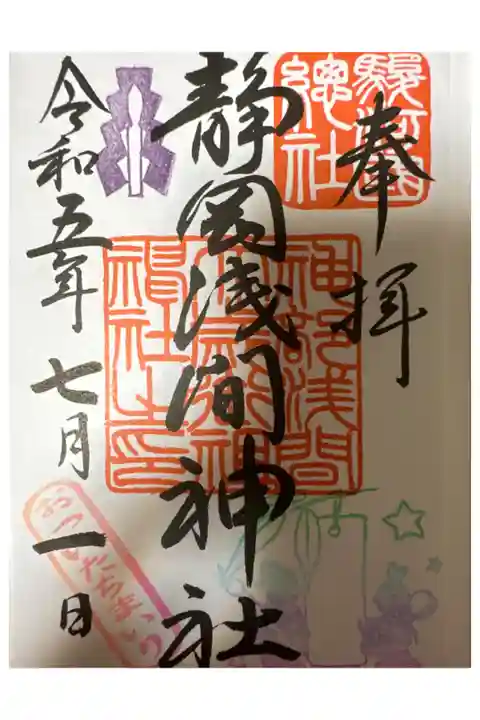 奉拝
駿河國
總社
静岡浅間神社
神部浅間
大歳御祖
神社之印
令和五年七月一日
おついたちまいり